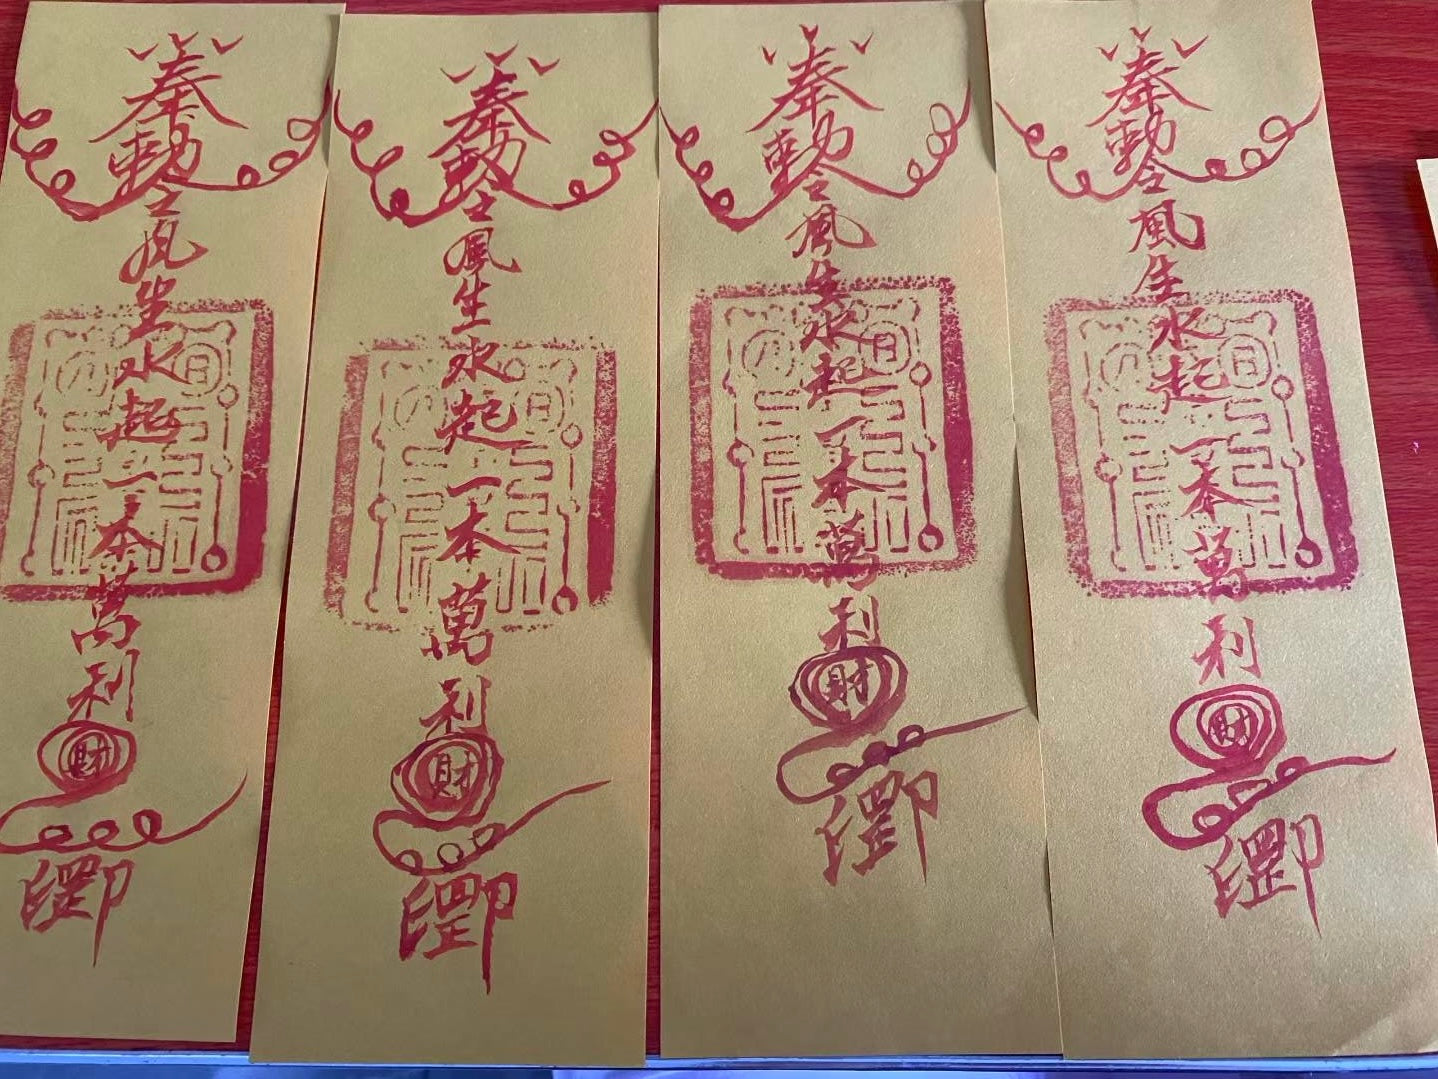 奉勅令風生水起一本萬利財
奉勅令風生水起一本萬利財
奉勅令風生水起一本萬利財
奉勅令風生水起一本萬利財